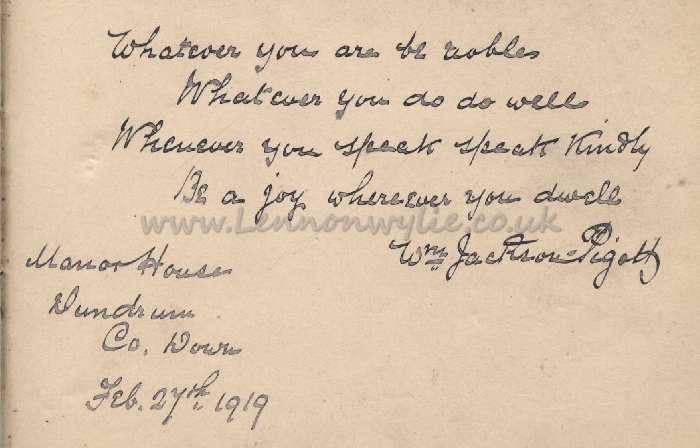 Whatever you are be noble
Whatever you do do well
Whenever you speak speak Kindly
Be a joy wherever you dwell
www.Lennonwylie.co.uk
Wm Jackson-Pigott
Manor House
Dundrum
Co. Down
Feb. 27th. 1919